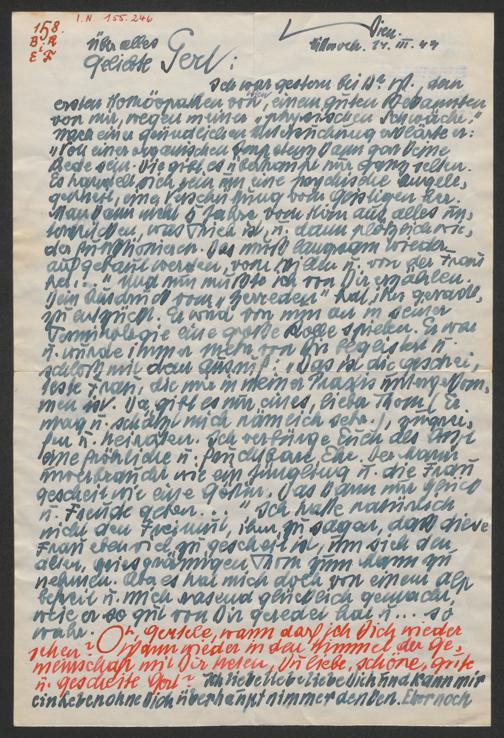 158.
B: R
E: F
I.N. 155.246
Wien.
Mittwoch. 24. III. 47
über alles
geliebte Gerl:
Ich war gestern bei Dr. , dem
ersten Homöopathen von Wien, einem guten Bekannten
von mir, wegen meiner "physischen Schwäche."
Nach einer gründlichen Untersuchung erklärte er:
"Von einer organischen Impotenz kann gar keine
Rede sein. Die gibt es überhaupt nur ganz selten.
Es handelt sich rein um eine psychische Angele-
genheit, eine vom Geistigen her.
Man kann nicht 6 Jahre vom Hirn aus alles un-
terdrücken, was Trieb ist, u. dann plötzlich wie-
der funktionieren. Das muß langsam wieder
aufgebaut werden, vom Willen u. von der Frau
her..." Und nun mußte ich von Dir erzählen.
Dein Ausdruck vom "Zerreden" hat ihn geradezu
entzückt. Er wird von nun an in seiner
Terminologie eine große Rolle spielen. Er war
u. wurde immer mehr von Dir begeistert u.
schloß mit dem Ausruf: "Das ist die geschei-
teste Frau, die mir in meiner Praxis untergekom-
men ist. Da gibt es nur eines, lieber Thom (Er
mag u. schätzt mich nämlich sehr.), zugrei-
fen u. heiraten. Ich verbürge Euch als Arzt
eine fröhliche u. fruchtbare Ehe. Der Mann
unverbraucht wie ein Jüngling u. die Frau
gescheit wie eine Göttin. Das kann nur Glück
u. Freude geben...." Ich hatte natürlich
nicht den Freimut, ihm zu sagen, daß diese
Frau eben viel zu gescheit ist, um sich den
alten, griesgrämigen Thom zum Mann zu
nehmen. Aber es hat mich doch von einem Alp
befreit u. mich rasend glücklich gemacht,
weil er so gut von Dir geredet hat u... so
wahr. Oh, Gerlele, wann darf ich Dich wieder
sehen? Wann wieder in den Himmel der Ge-
meinschaft mit Dir treten, Du liebe, schöne, gute
u. gescheite Gerl? Ich liebe liebe liebe Dich und kann mir
ein Leben ohne Dich überhaupt nimmer denken. Eher noch